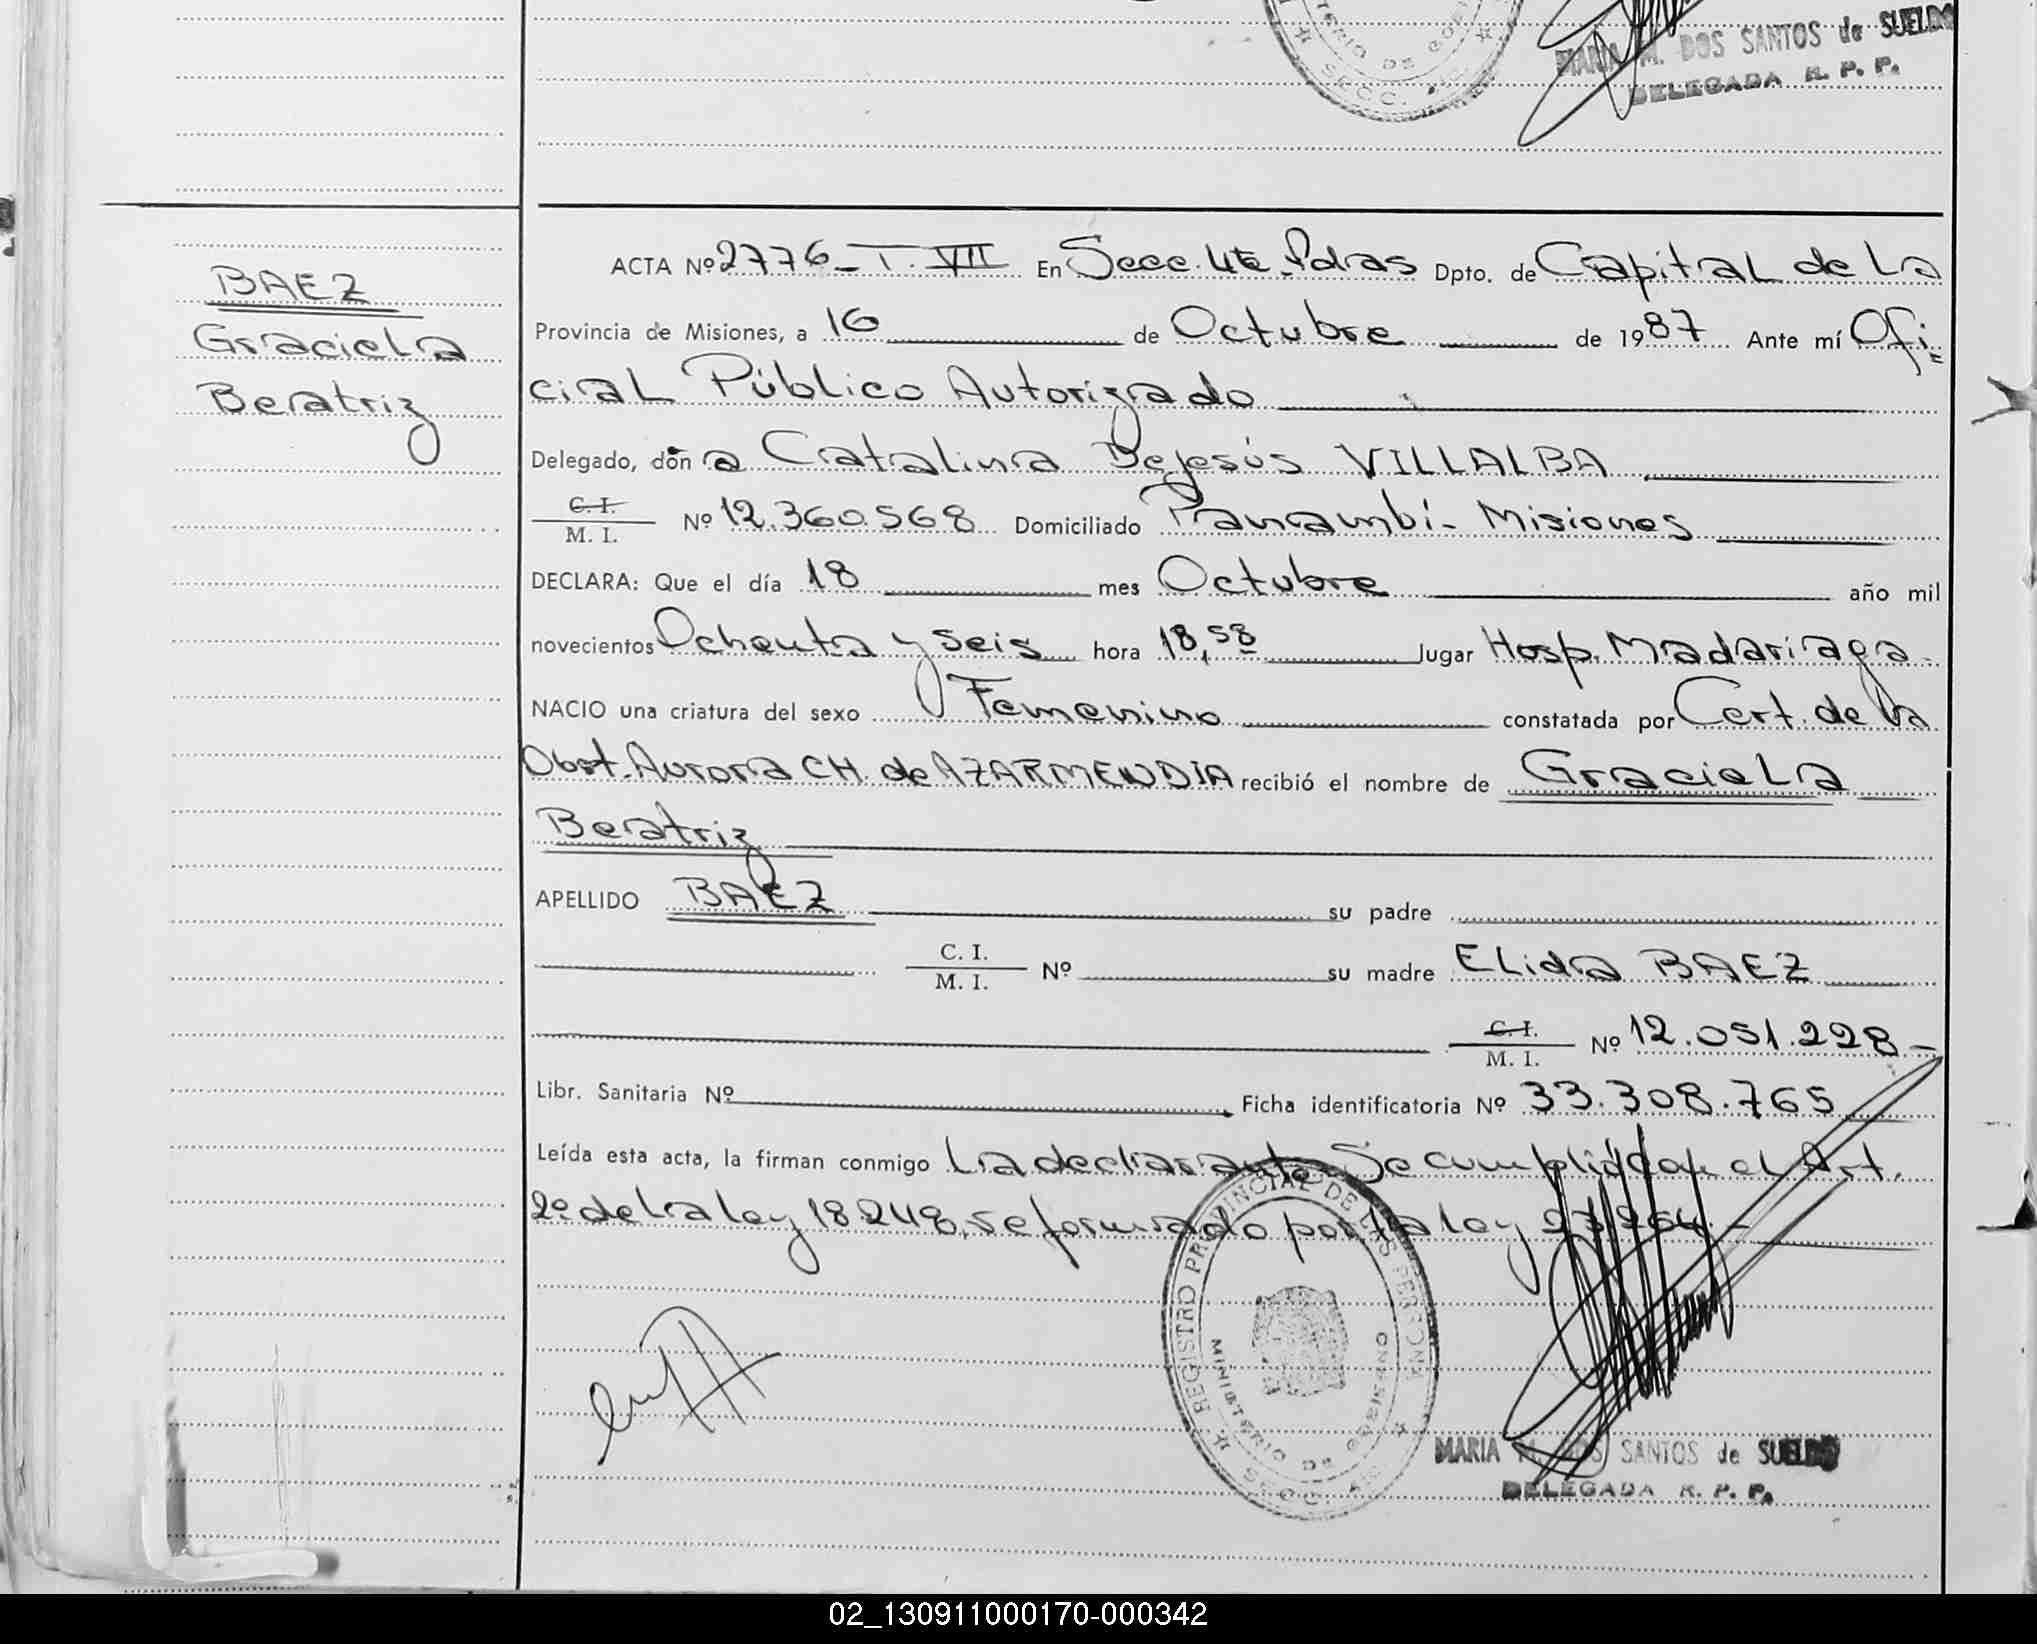 TERIO DE GOBI
SECC.
MARIA M. DOS SANTOS de SUELDO
DELEGADA R. P. P.
BAEZ
Graciela
Beatriz
ACTA Nº 2776 - T. VII En Secc. 4ta Pdas Dpto. de Capital de la
Provincia de Misiones, a 16 de Octubre de 1987 Ante mí Ofi=
cial Público Autorizado
Delegado, don a Catalina Dejesús VILLALBA
C. I.
M. I. Nº 12.360.568 Domiciliado Panambí - Misiones
DECLARA: Que el día 18 mes Octubre año mil
novecientos Ochenta y seis hora 18,58 lugar Hosp. Madariaga
NACIO una criatura del sexo Femenino constatada por Cert. de la
Obst. Aurora CH. de AZARMENDIA recibió el nombre de Graciela
Beatriz
APELLIDO BAEZ su padre
C. I.
M. I. Nº su madre Elida BAEZ
C. I.
M. I. Nº 12.051.228 -
Libr. Sanitaria Nº Ficha identificatoria Nº 33.308.765
Leída esta acta, la firman conmigo la declarante. Se cumplió con el Art.
2º de la ley 18.248, reformado por la ley
REGISTRO PROVINCIAL DE LAS PERSONAS
MINISTERIO DE GOBIERNO
SECC.
MARIA M. DOS SANTOS de SUELDO
DELEGADA R. P. P.
02_130911000170-000342